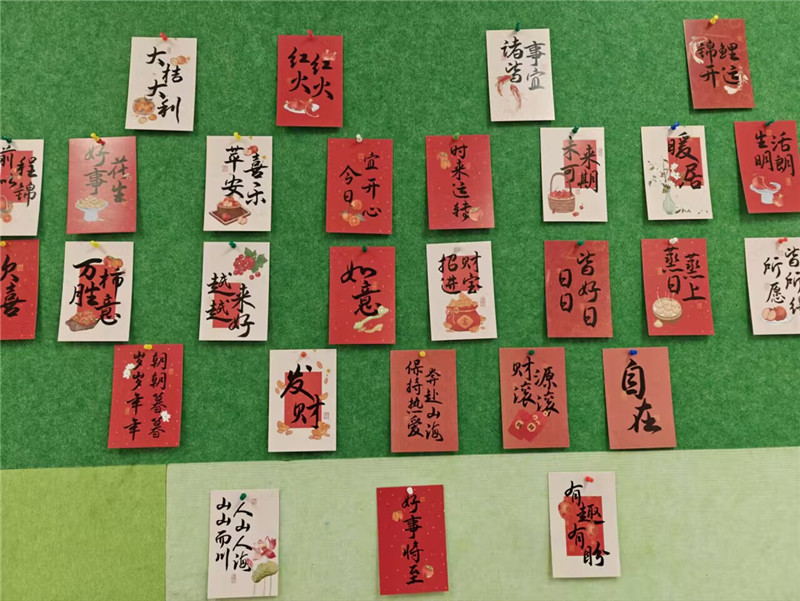 大桔
大利
红火
红火
诸事
皆宜
锦鲤
开运
前程
似锦
好事
花生
苹安
喜乐
今日
宜开心
时来运转
未来
可期
暖居
生活
明朗
喜
万柿
胜意
越来
越好
如意
招财
进宝
日日
皆好日
蒸蒸
日上
所愿
皆所
朝朝暮暮
岁岁年年
发财
保持热爱
奔赴山海
财源
滚滚
自在
人山人海
山山而川
好事将至
有趣
有盼